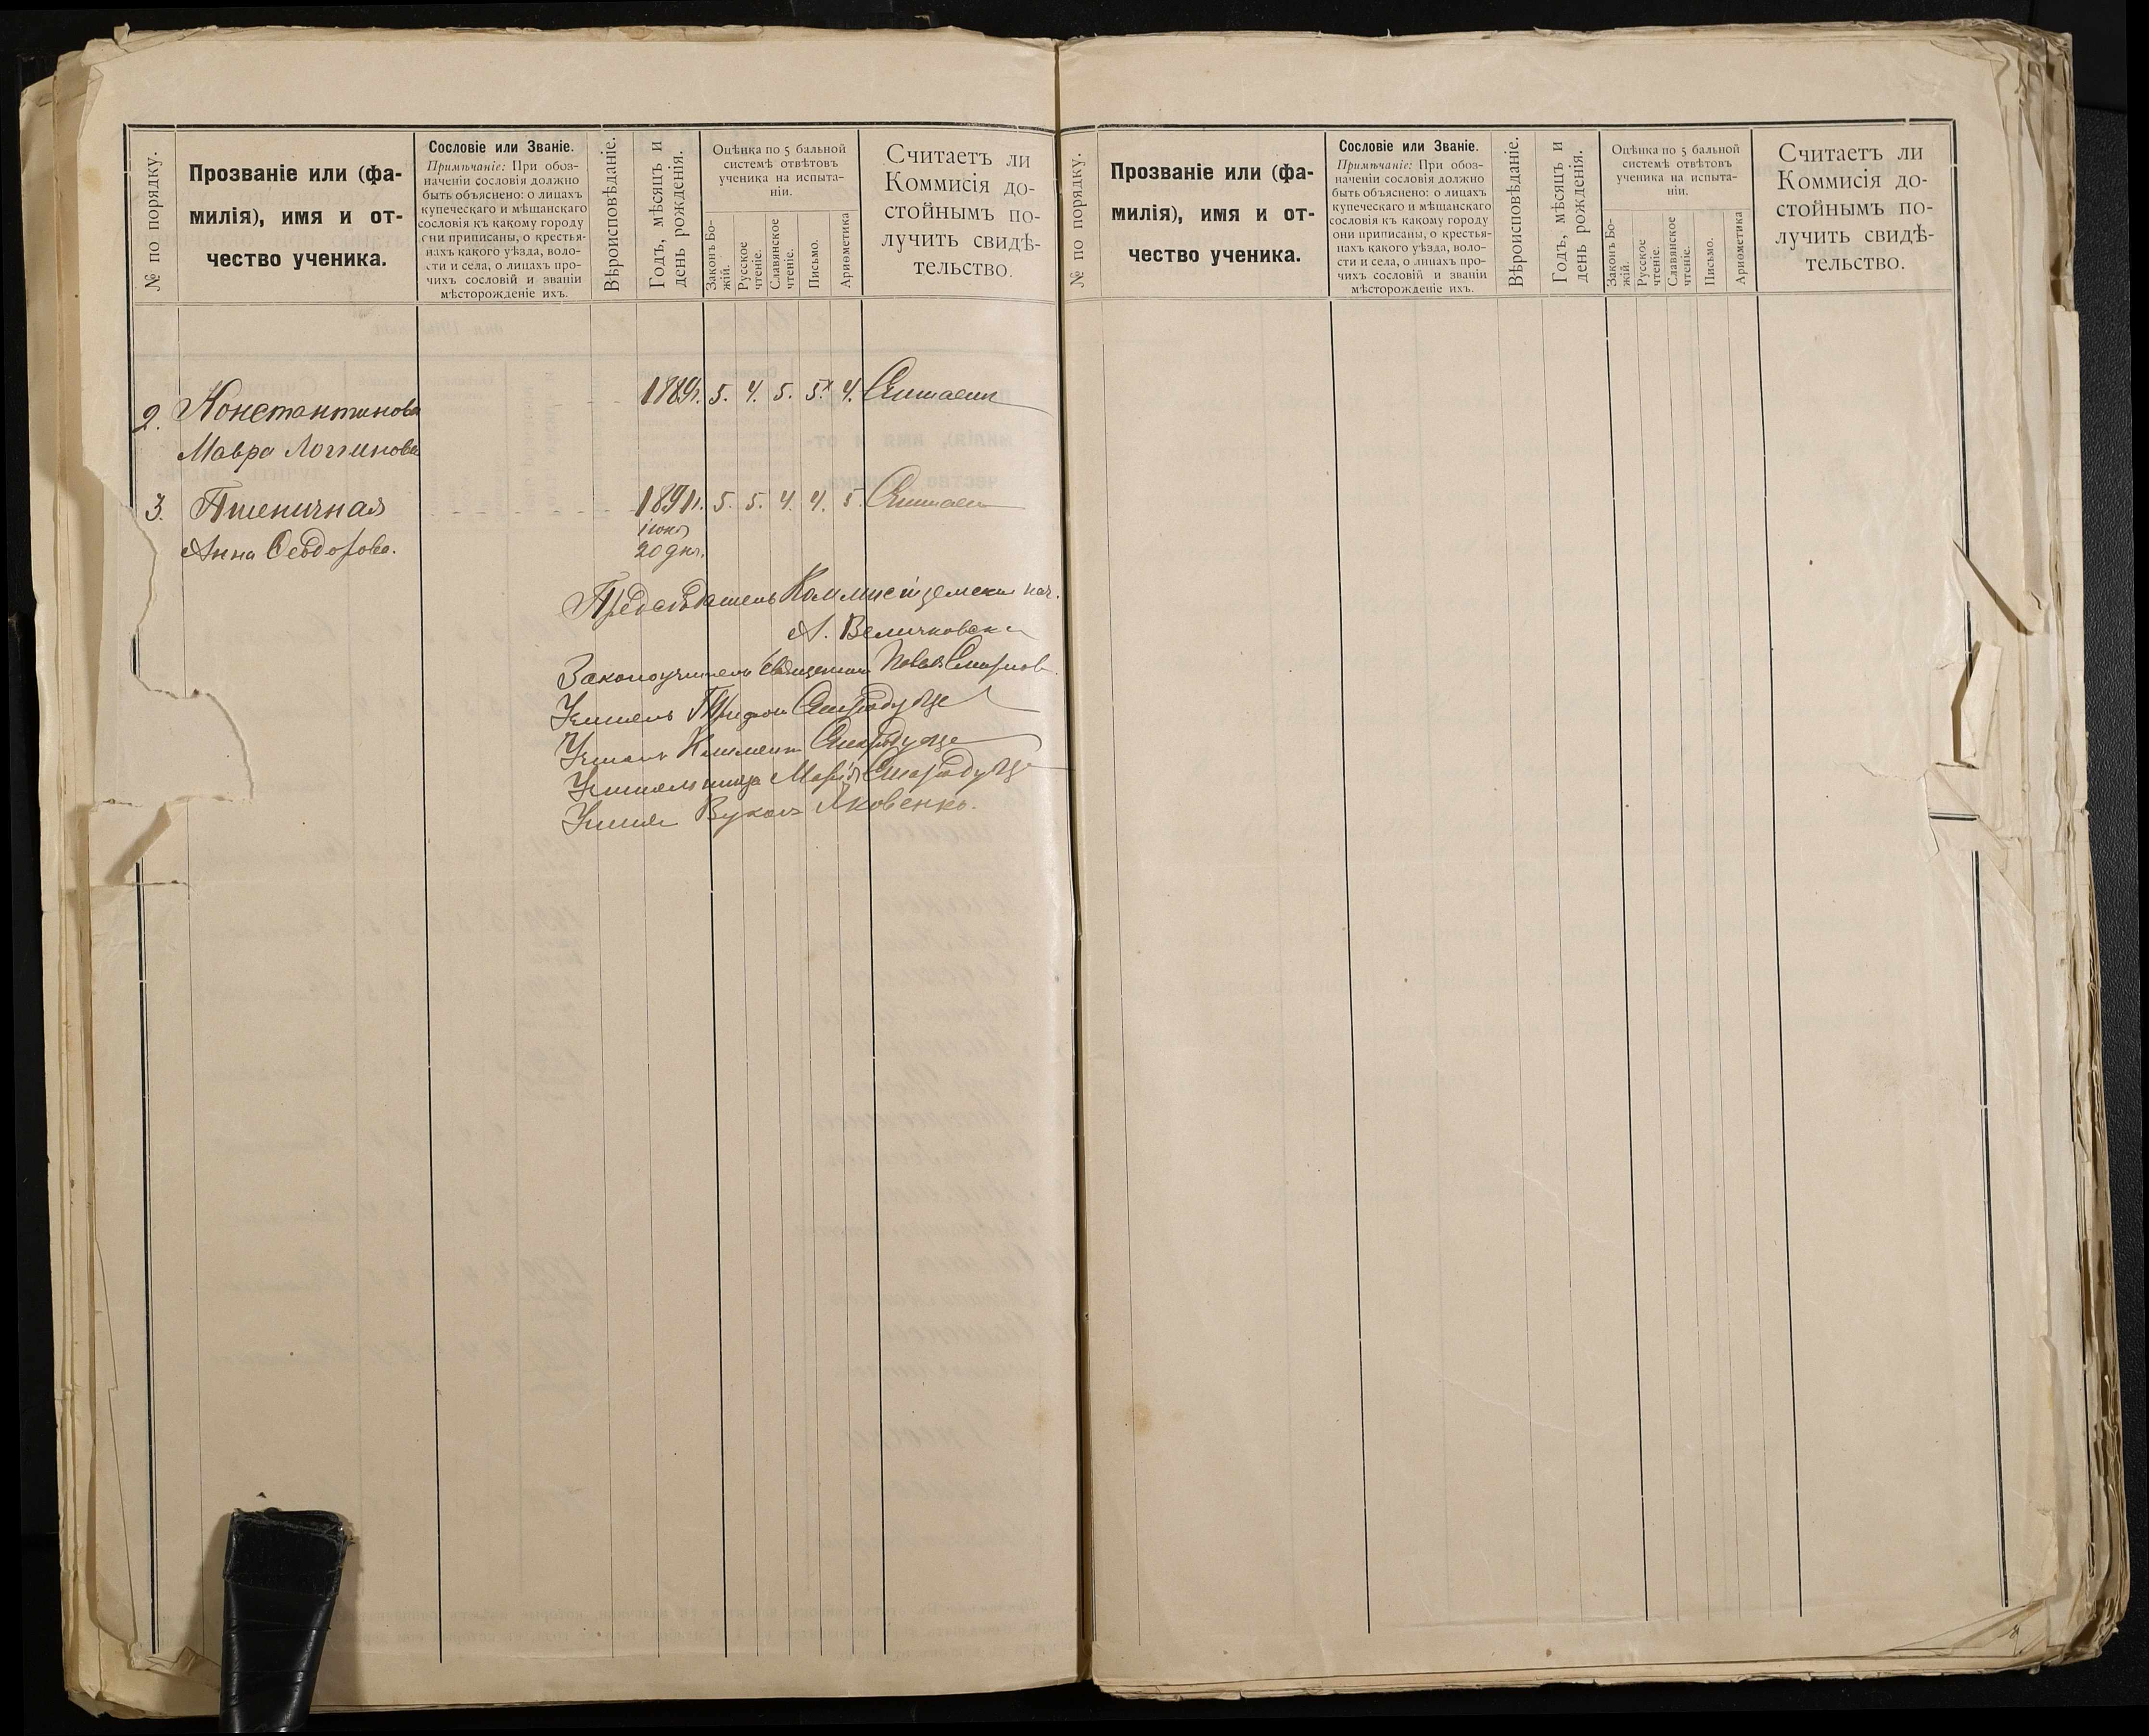 № по порядку.
Прозваніе или (фа-
милія), имя и от-
чество ученика.
Сословіе или Званіе.
Примѣчаніе: При обоз-
наченіи сословія должно
быть объяснено: о лицахъ
купеческаго и мѣщанскаго
сословія къ какому городу
они приписаны, о крестья-
нахъ какого уѣзда, воло-
сти и села, о лицахъ про-
чихъ сословій и званіи
мѣсторожденіе ихъ.
Вѣроисповѣданіе.
Годъ, мѣсяцъ и
день рожденія.
Оцѣнка по 5 бальной
системѣ отвѣтовъ
ученика на испыта-
ніи.
Законъ Бо-
жій.
Русское
чтеніе.
Славянское
чтеніе.
Письмо.
Ариѳметика
Считаетъ ли
Коммисія до-
стойнымъ по-
лучить свидѣ-
тельство.
2. Константинова 1889г. 5. 4. 5. 5. 4. Считаетъ
Мавра Логгинова
3. Пшеничная 1891г. 5. 5. 4. 4. 5. Считаетъ
іюня
Анна Ѳеодорова. 20 дня.
Предсѣдатель Коммисіи земскій нач.
А. Величковскій
Законоучитель Священникъ Павелъ Смирнов
Учитель Трифон Стародубце
Учитель Климентъ Стародубце
Учительница Марія Стародубце
Учитель Вуколъ Яковенко.
№ по порядку.
Прозваніе или (фа-
милія), имя и от-
чество ученика.
Сословіе или Званіе.
Примѣчаніе: При обоз-
наченіи сословія должно
быть объяснено: о лицахъ
купеческаго и мѣщанскаго
сословія къ какому городу
они приписаны, о крестья-
нахъ какого уѣзда, воло-
сти и села, о лицахъ про-
чихъ сословій и званіи
мѣсторожденіе ихъ.
Вѣроисповѣданіе.
Годъ, мѣсяцъ и
день рожденія.
Оцѣнка по 5 бальной
системѣ отвѣтовъ
ученика на испыта-
ніи.
Законъ Бо-
жій.
Русское
чтеніе.
Славянское
чтеніе.
Письмо.
Ариѳметика
Считаетъ ли
Коммисія до-
стойнымъ по-
лучить свидѣ-
тельство.